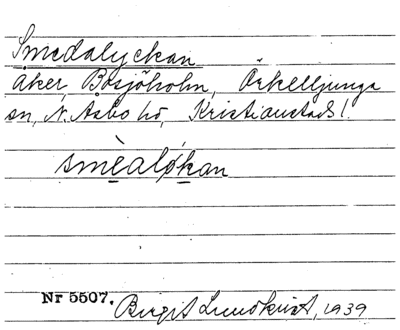 Smedalyckan
åker, Bosjöholm, Örkelljunga
sn, N. Åsbo hd, Kristianstads l.
smèalo̡kan
Nr 5507. Birgit Lundkvist, 1939